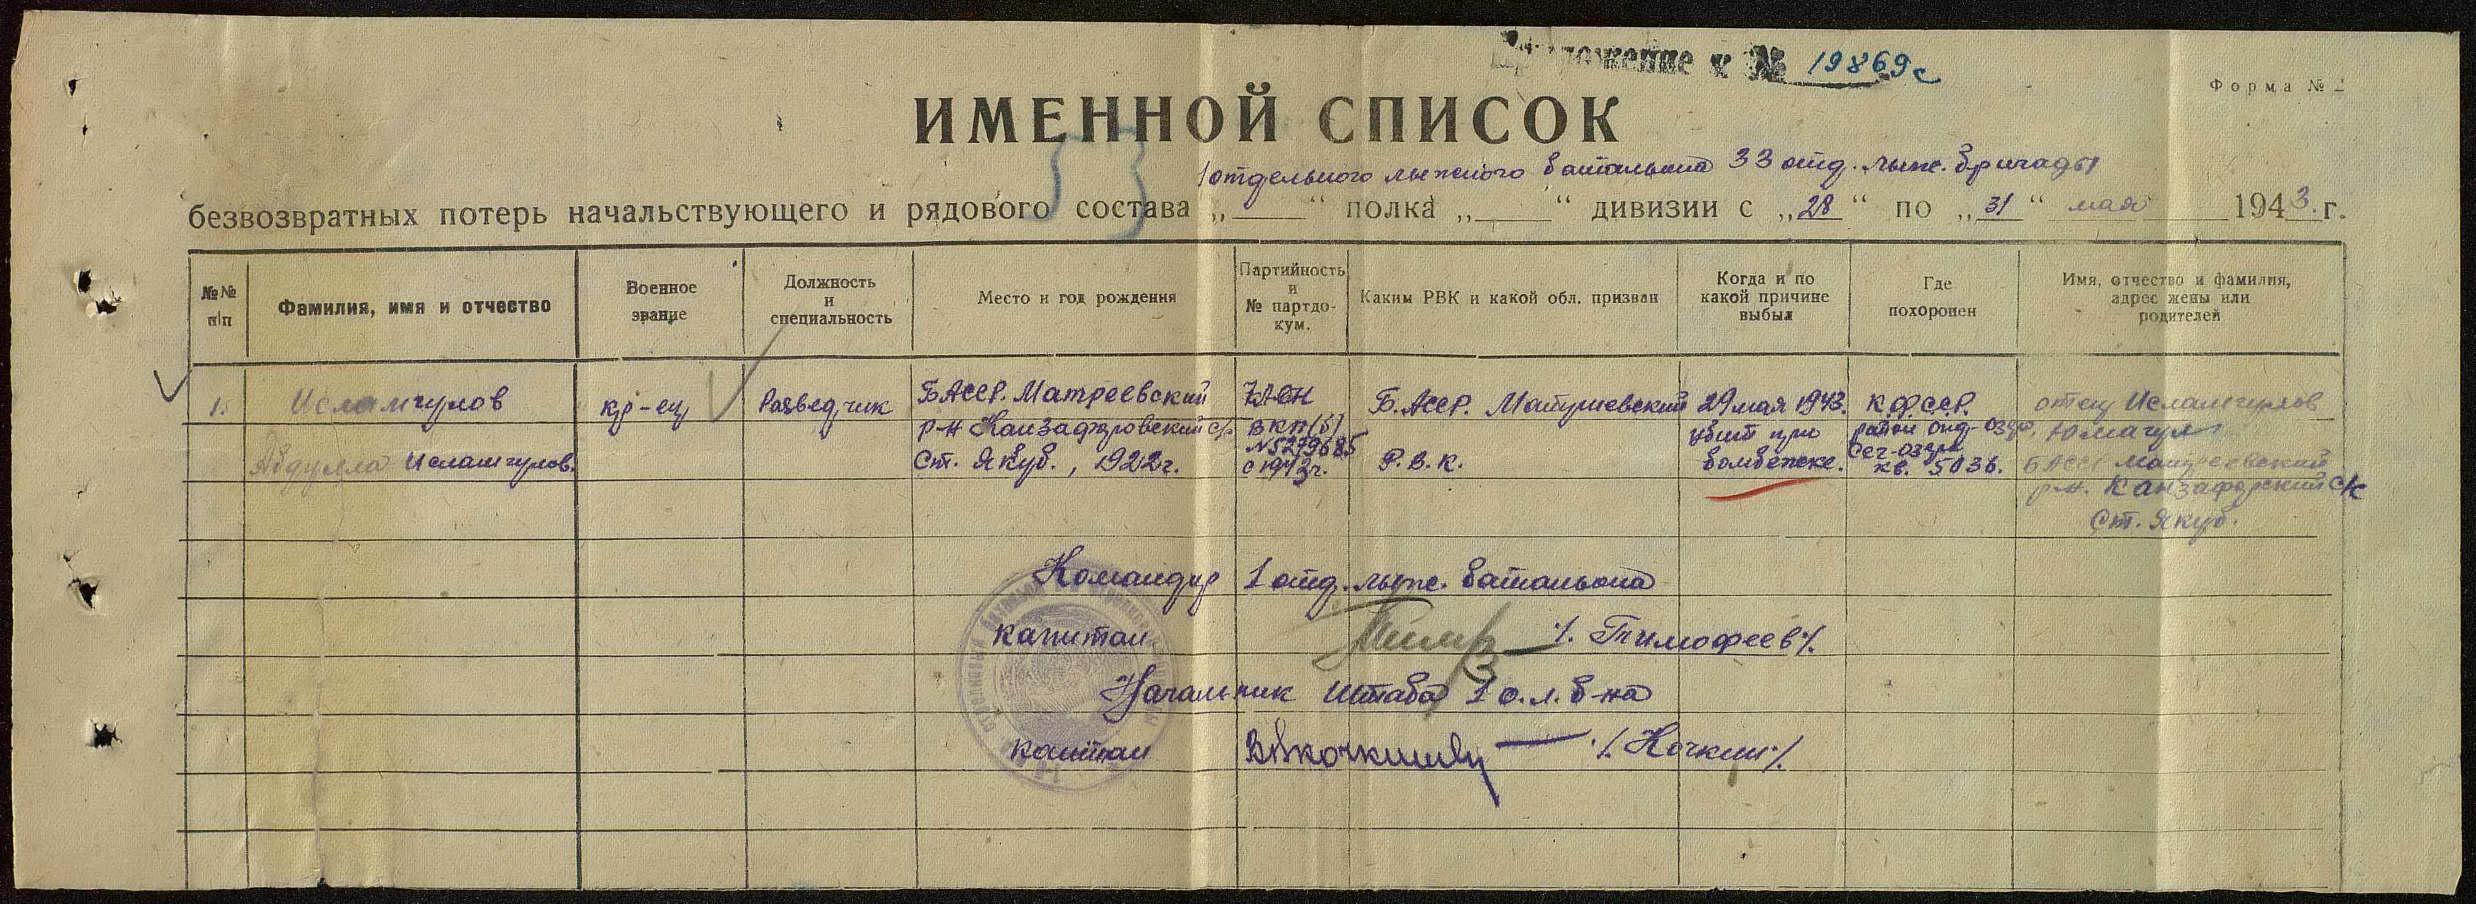 Приложение к № 19869с
Форма № 2
ИМЕННОЙ СПИСОК
1 отдельного лыжного батальона 33 отд. лыж. бригады
безвозвратных потерь начальствующего и рядового состава „ “ полка „ “ дивизии с „28“ по „31“ мая 1943 г.
№№ п/п
Фамилия, имя и отчество
Военное звание
Должность и специальность
Место и год рождения
Партийность и № партдо-кум.
Каким РВК и какой обл. призван
Когда и по какой причине выбыл
Где похоронен
Имя, отчество и фамилия, адрес жены или родителей
1. Исламгулов кр-ец Разведчик БАССР. Матреевский ВКП(б) Б.АССР. 29 мая 1943. К.Ф.ССР. отец Исламгулов
р-н Канзафаровский с/с №5279685 убит при район Юмагул
Абдулла Исламгулов. Ст. Якуб., 1922г. с 1943г. Р.В.К. бомбежке. кв. 5036. БАССР
р-н. Канзафарский с/с
Ст. Якуб.
Командир 1 отд. лыж. батальона
капитан /. Тимофеев /.
Начальник Штаба 1 о.л.б-на
капитан /. Кочкин /.